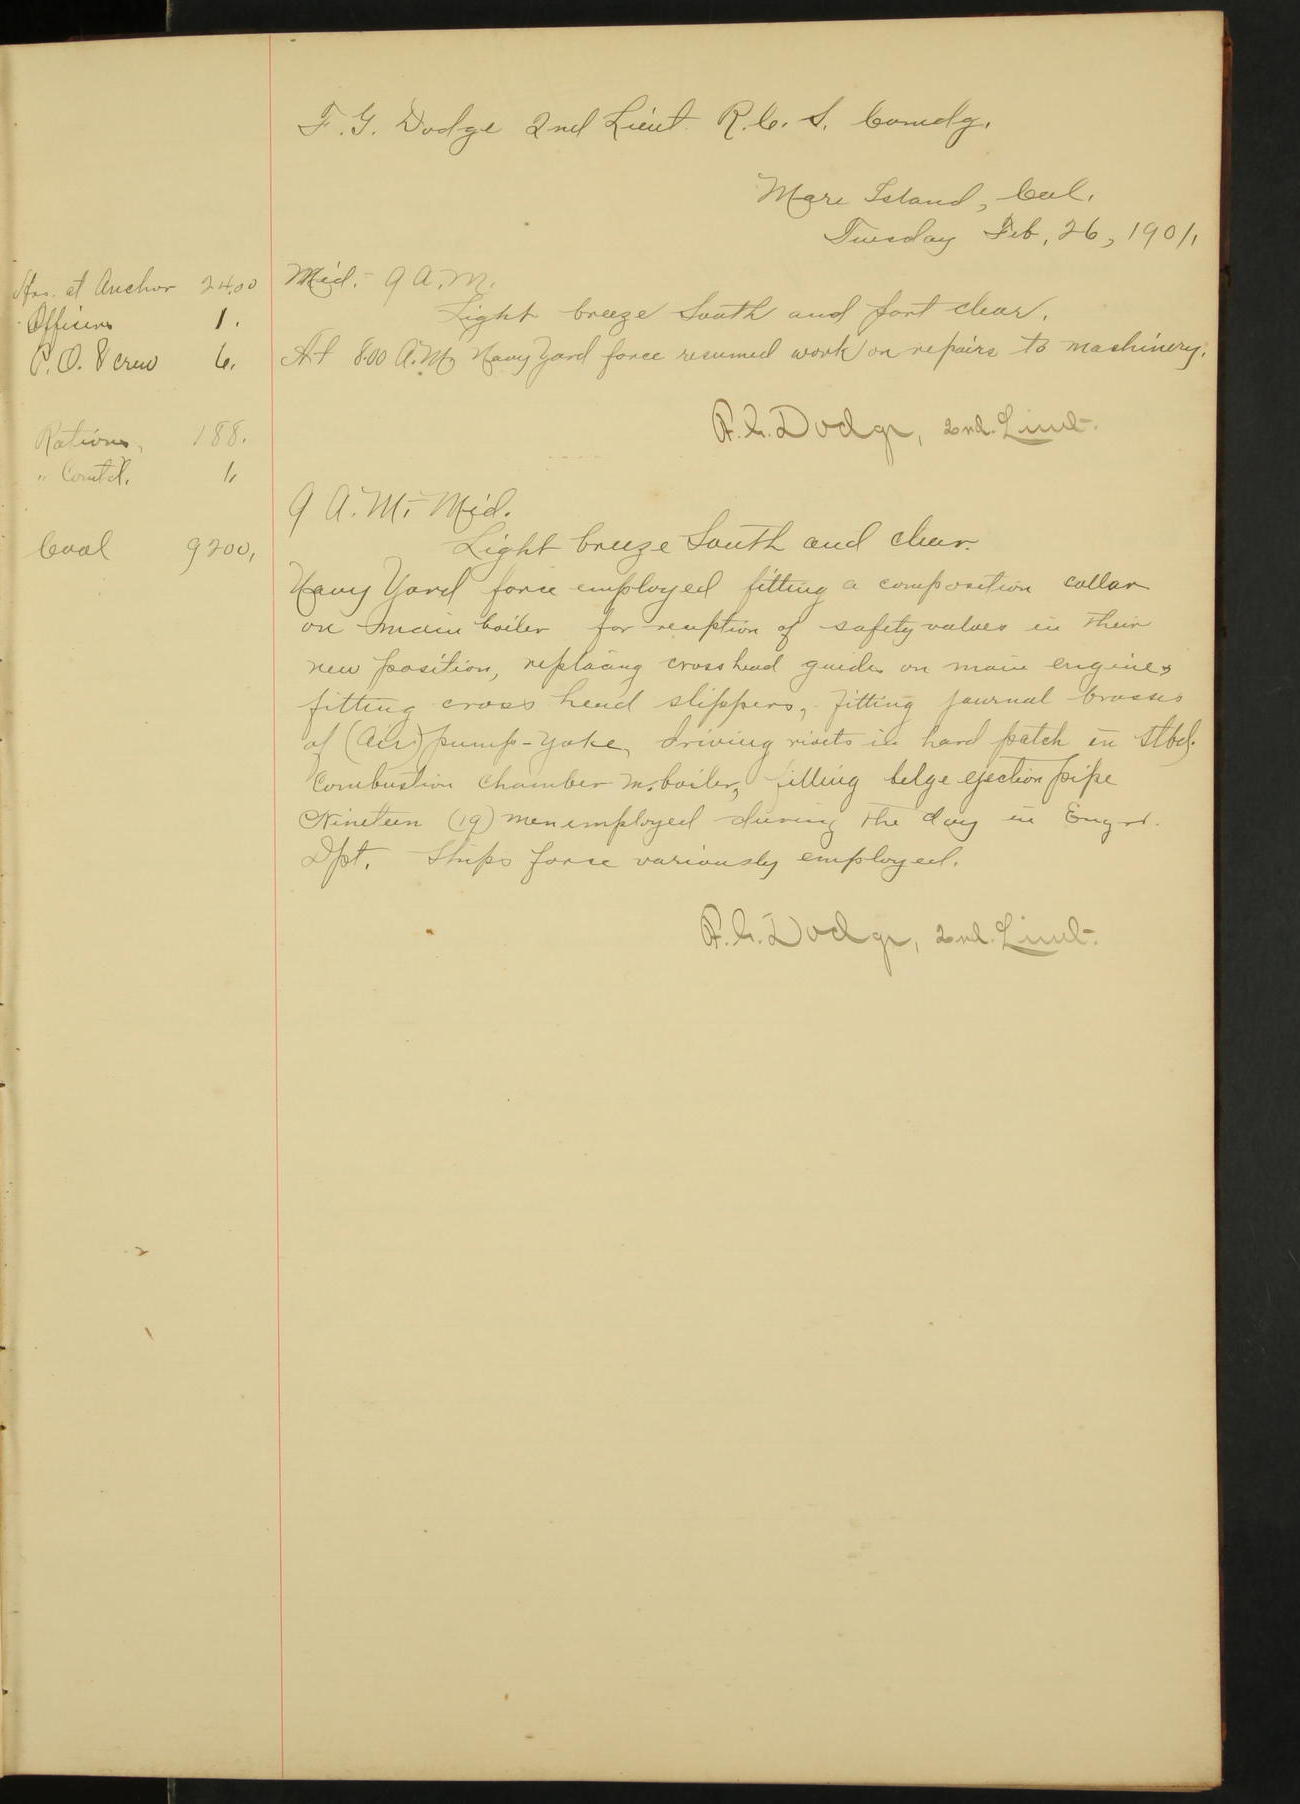 F. G. Dodge 2nd Lieut. R. C. S. Comdg.
Mare Island, Cal.
Tuesday Feb, 26, 1901,
Hrs. at Anchor 24.00
Officers 1.
P. O. & crew 6.
Rations, 188.
" Comtd. 1,
Coal 9200,
Mid. - 9 A.M.
Light breeze South and part clear.
At 8.00 A.M. Navy Yard force resumed work on repairs to machinery.
F. G. Dodge, 2nd. Lieut.
9 A.M. - Mid.
Light breeze South and clear.
Navy Yard force employed fitting a composition collar
on main boiler for reception of safety valves in their
new position, replacing crosshead guides on main engine,
fitting cross head slippers, fitting journal brasses
of (Air) pump-yoke, driving rivets in hard patch in Stbd.
Combustion chamber m. boiler, fitting belge ejection pipe
Nineteen (19) men employed during the day in Engr.
Dpt. Ships force variously employed.
F. G. Dodge, 2nd. Lieut.